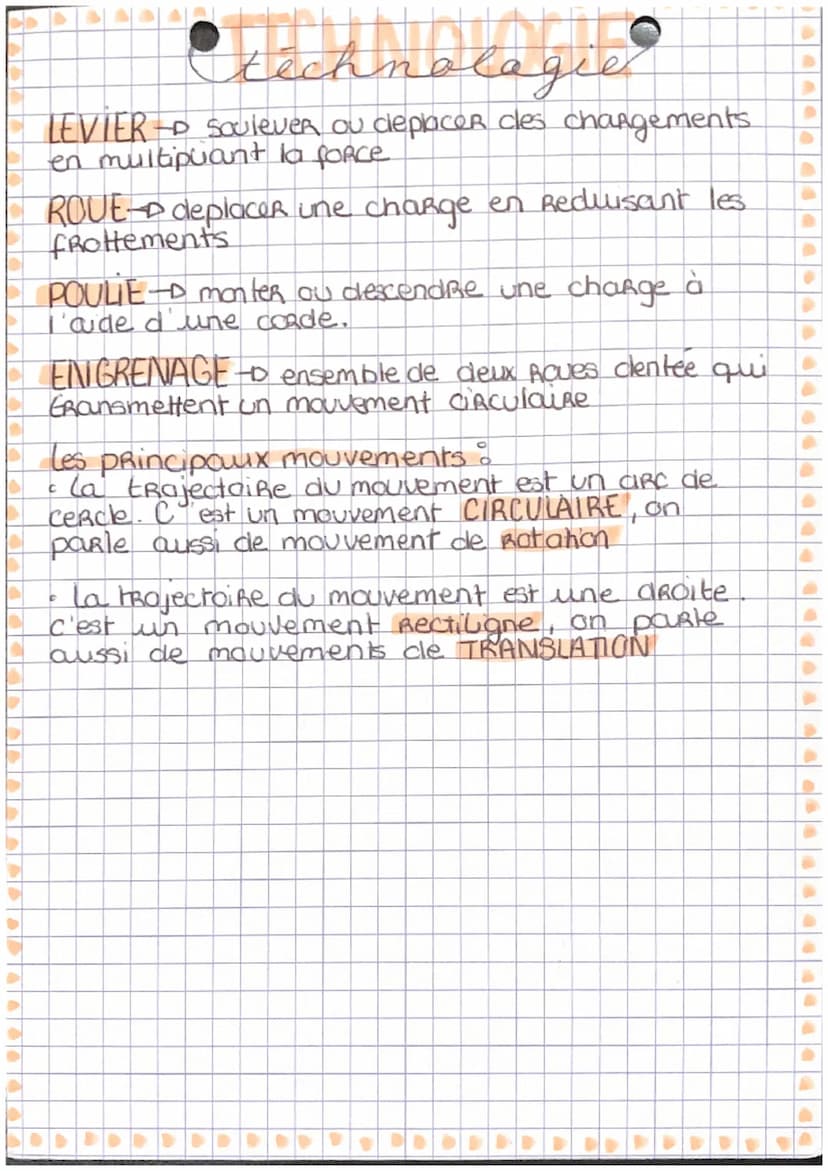 TECHNOLOGIE
téchnologie
LEVIER → soulever ou deplacer des chargements
en multipliant la force
ROUE → deplacer une charge en reduisant les
frottements
POULIE → monter ou descendre une charge à
l'aide d'une corde.
ENGRENAGE → ensemble de deux roues dentée qui
transmettent un mouvement circulaire
Les principaux mouvements :
• La trajectoire du mouvement est un arc de
cercle. C'est un mouvement CIRCULAIRE, on
parle aussi de mouvement de rotation
• La trajectoire du mouvement est une droite.
c'est un mouvement rectiligne, on parle
aussi de mouvements de TRANSLATION